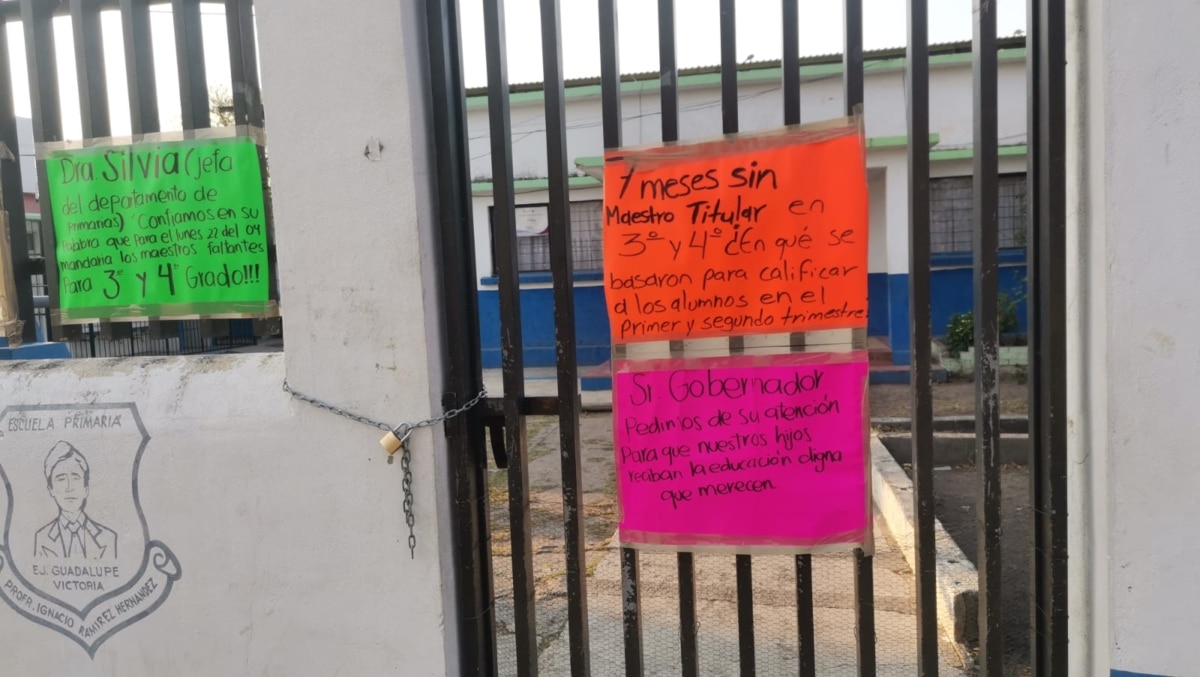 Dra. Silvia (jefa
del departamento de
Primarias) "Confiamos en su
Palabra que para el lunes 22 del 04
mandaria los maestros faltantes
Para 3° y 4° Grado!!!
7 meses sin
Maestro Titular en
3º y 4º ¿En qué se
basaron para calificar
a los alumnos en el
Primer y segundo trimestre?
Sr. Gobernador
Pedimos de su atención
Para que nuestros hijos
reciban la educación digna
que merecen.
ESCUELA PRIMARIA
EJ. GUADALUPE
VICTORIA
PROFR. IGNACIO RAMIREZ HERNANDEZ